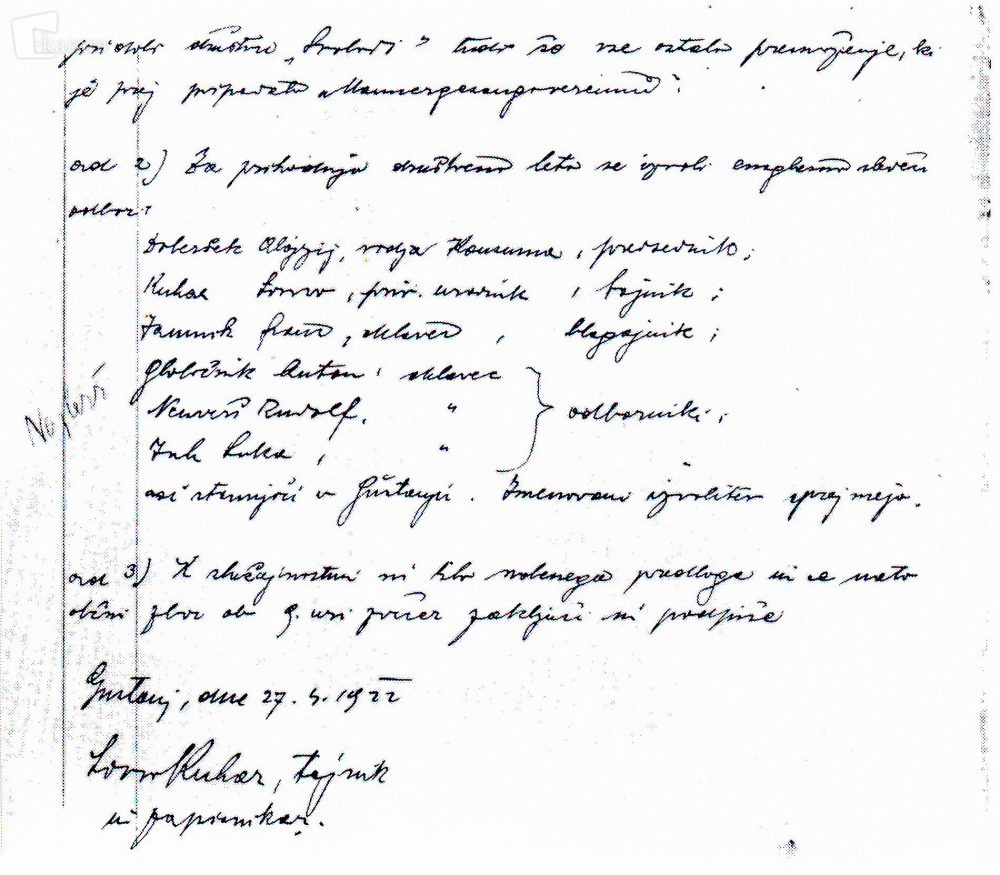 pridobi društvu „Svobodi" tudi še vse ostalo premoženje, ki
je prej pripadalo „Mannergesangvereinu".
ad 2) Za prihodnje društveno leto se izvoli sledeči
odbor:
Doberšek Alojzij, vodja Konsuma, predsednik;
Kuhar Lovro, priv. uradnik, tajnik;
Jamnik Franc, delavec, blagajnik;
Globočnik Anton, delavec
Rudolf, "
Luka, " odborniki;
vsi stanujoči v Guštanju. Imenovani izvolitev sprejmejo.
ad 3) K slučajnostim ni bilo nobenega predloga in se nato
občni zbor ob 9. uri zvečer zaključi in podpiše
Guštanj, dne 27. 1922
Lovro Kuhar, tajnik
in zapisnikar.